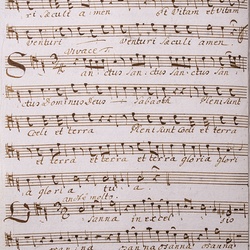 ri sæculi amen Et Vitam et Vitam
Venturi Venturi sæculi amen
Vivace
Sanctus sanctus sanctus
ctus Dominus Deus Sabaoth Pleni sunt
Coeli et terra Pleni sunt Coeli et terra
et terra et terra et terra gloria glori
a gloria tu a
andte molto
Osanna in excel sis
osanna osanna